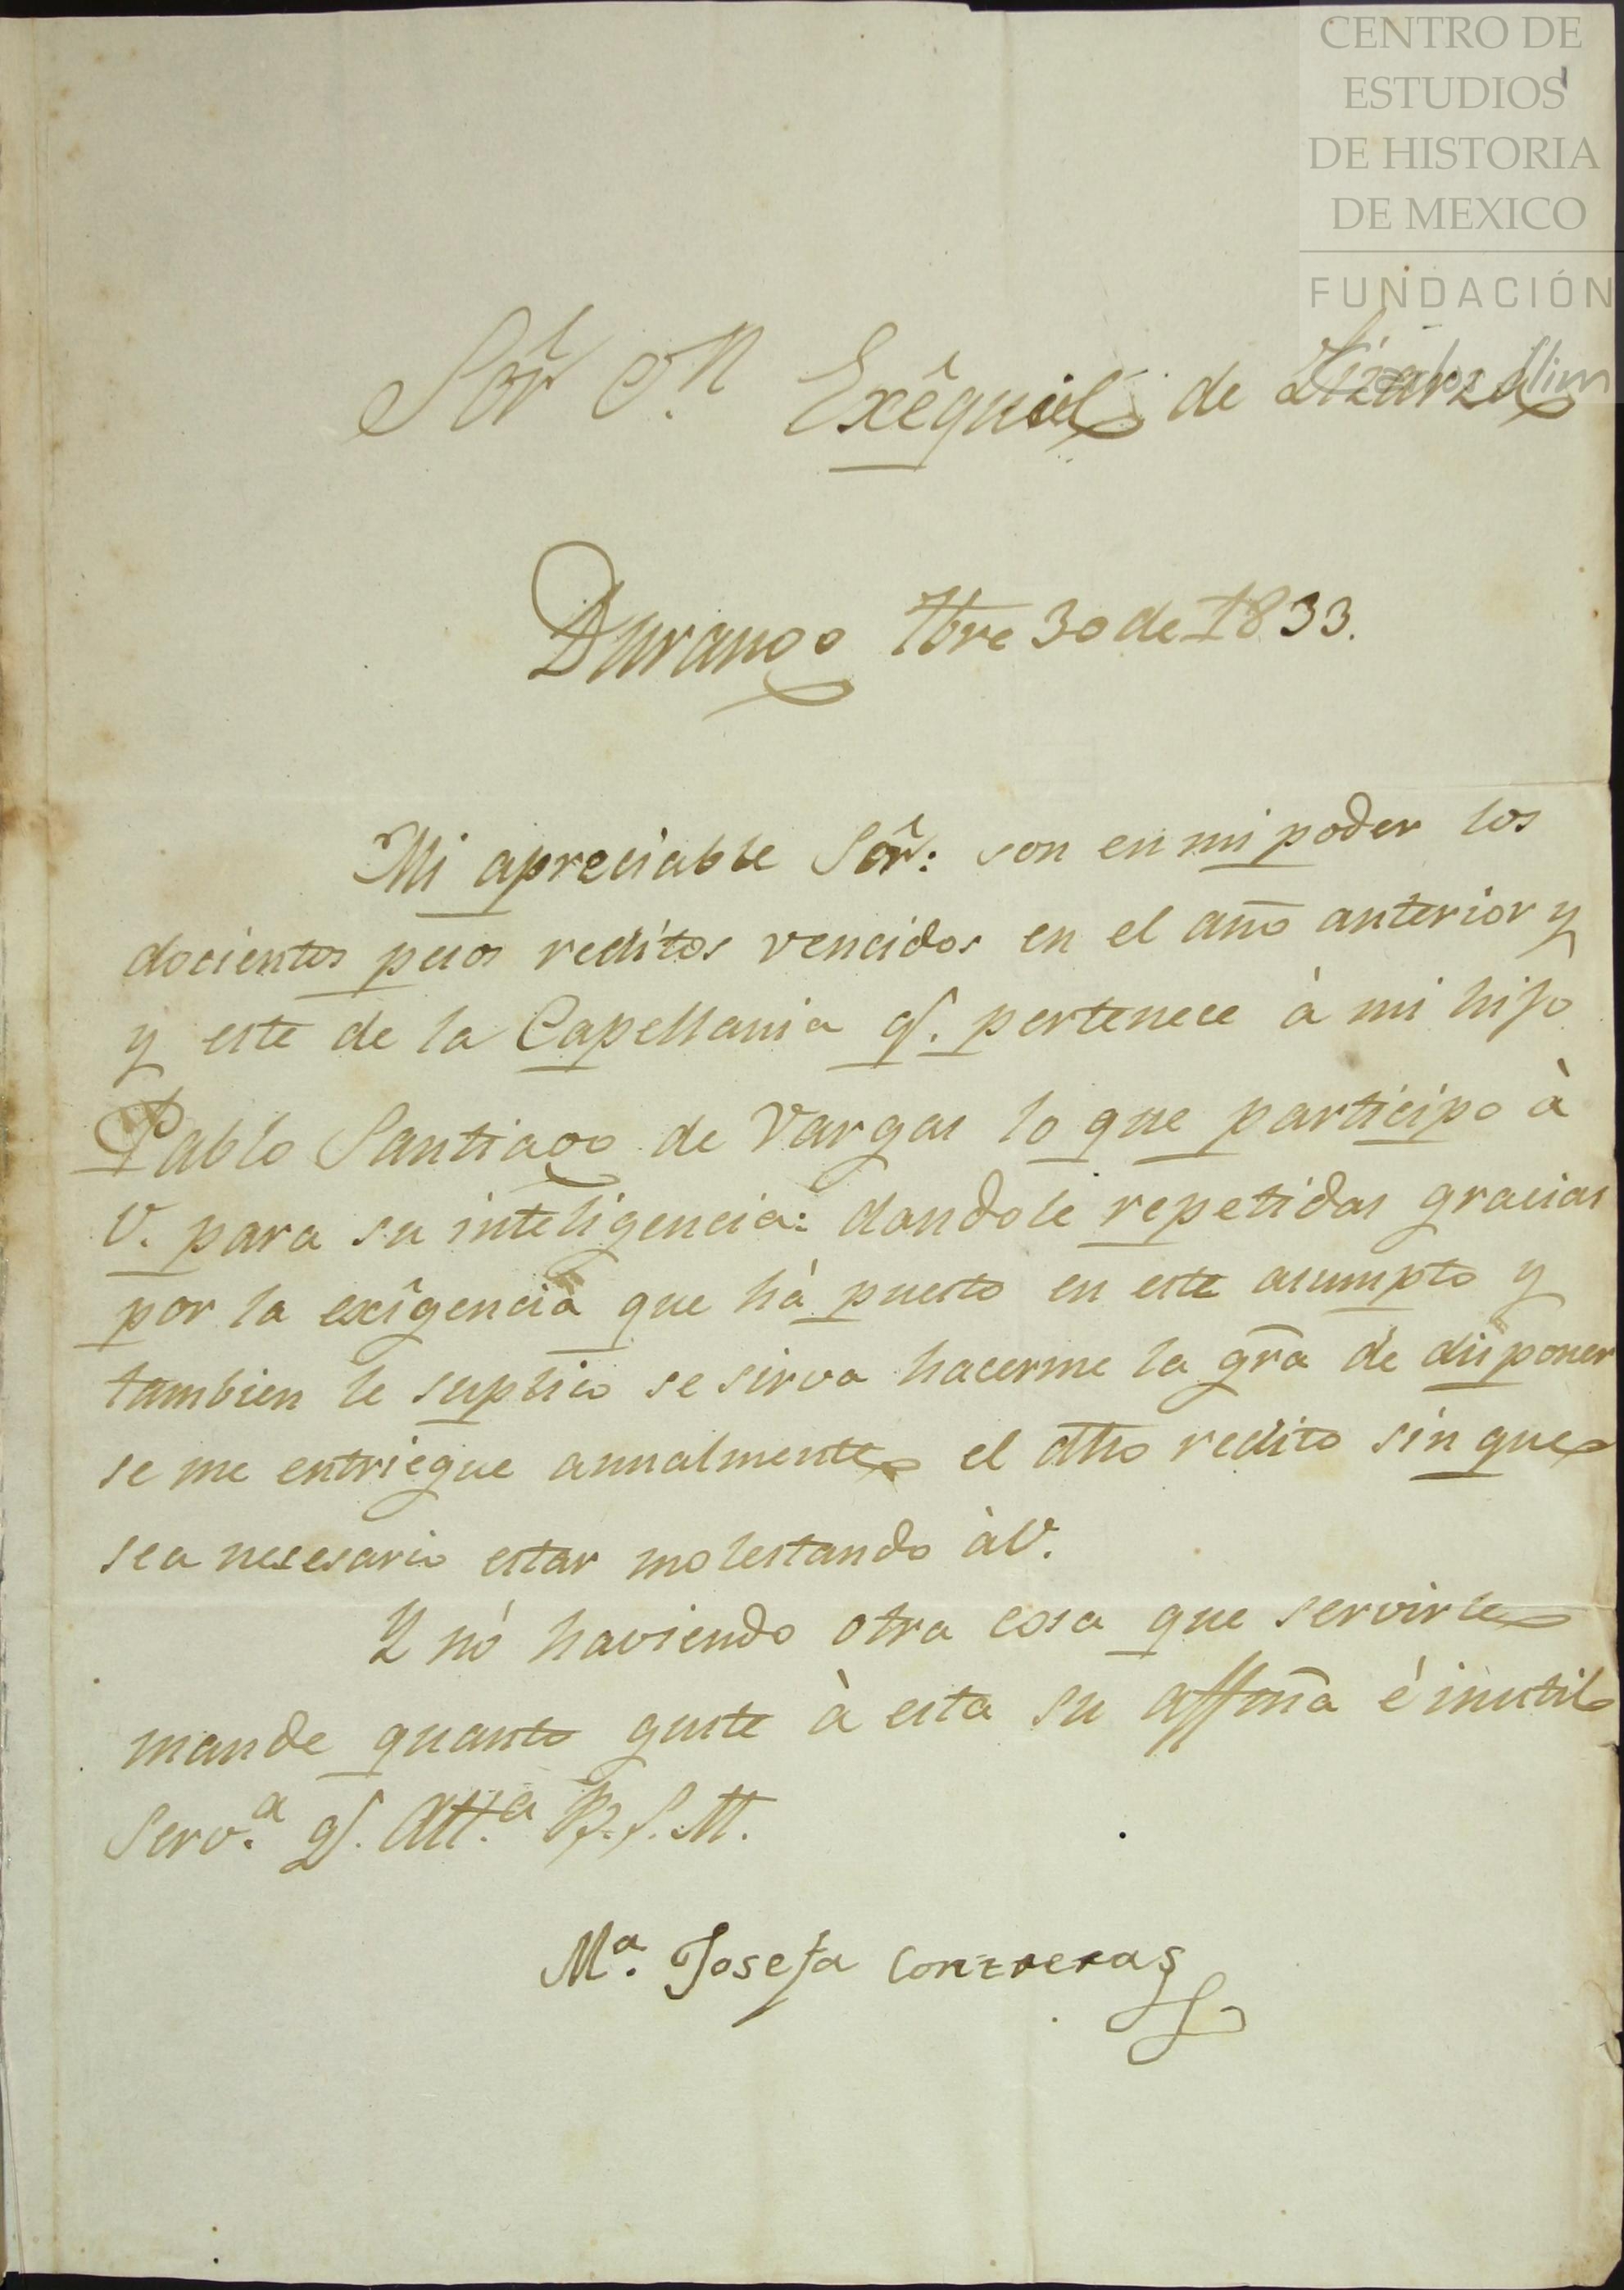 CENTRO DE
ESTUDIOS
DE HISTORIA
DE MEXICO
FUNDACIÓN
Carlos Slim
Sôr Dn. Exêquiel de Lizarza
Durango 7bre 30 de 1833.
Mi apreciable Sôr: son en mi poder los
docientos pesos reditos vencidos en el año anterior y
y este de la Capellania q. pertenece à mi hijo
Pablo Santiago de Vargas lo que participo à
V. para su inteligencia: dandole repetidas gracias
por la exîgencia que hà puesto en este asumpto y
tambien le suplico se sirva hacerme la grã de disponer
se me entriegue annualmente el dho redito sin que
sea nesesario estar molestando àV.
Y nó haviendo otra cosa que servirle
mande quanto guste à esta su affmã é inutil
Serv.ª q. Att.ª B. S. M.
Mª. Josefa Contreras